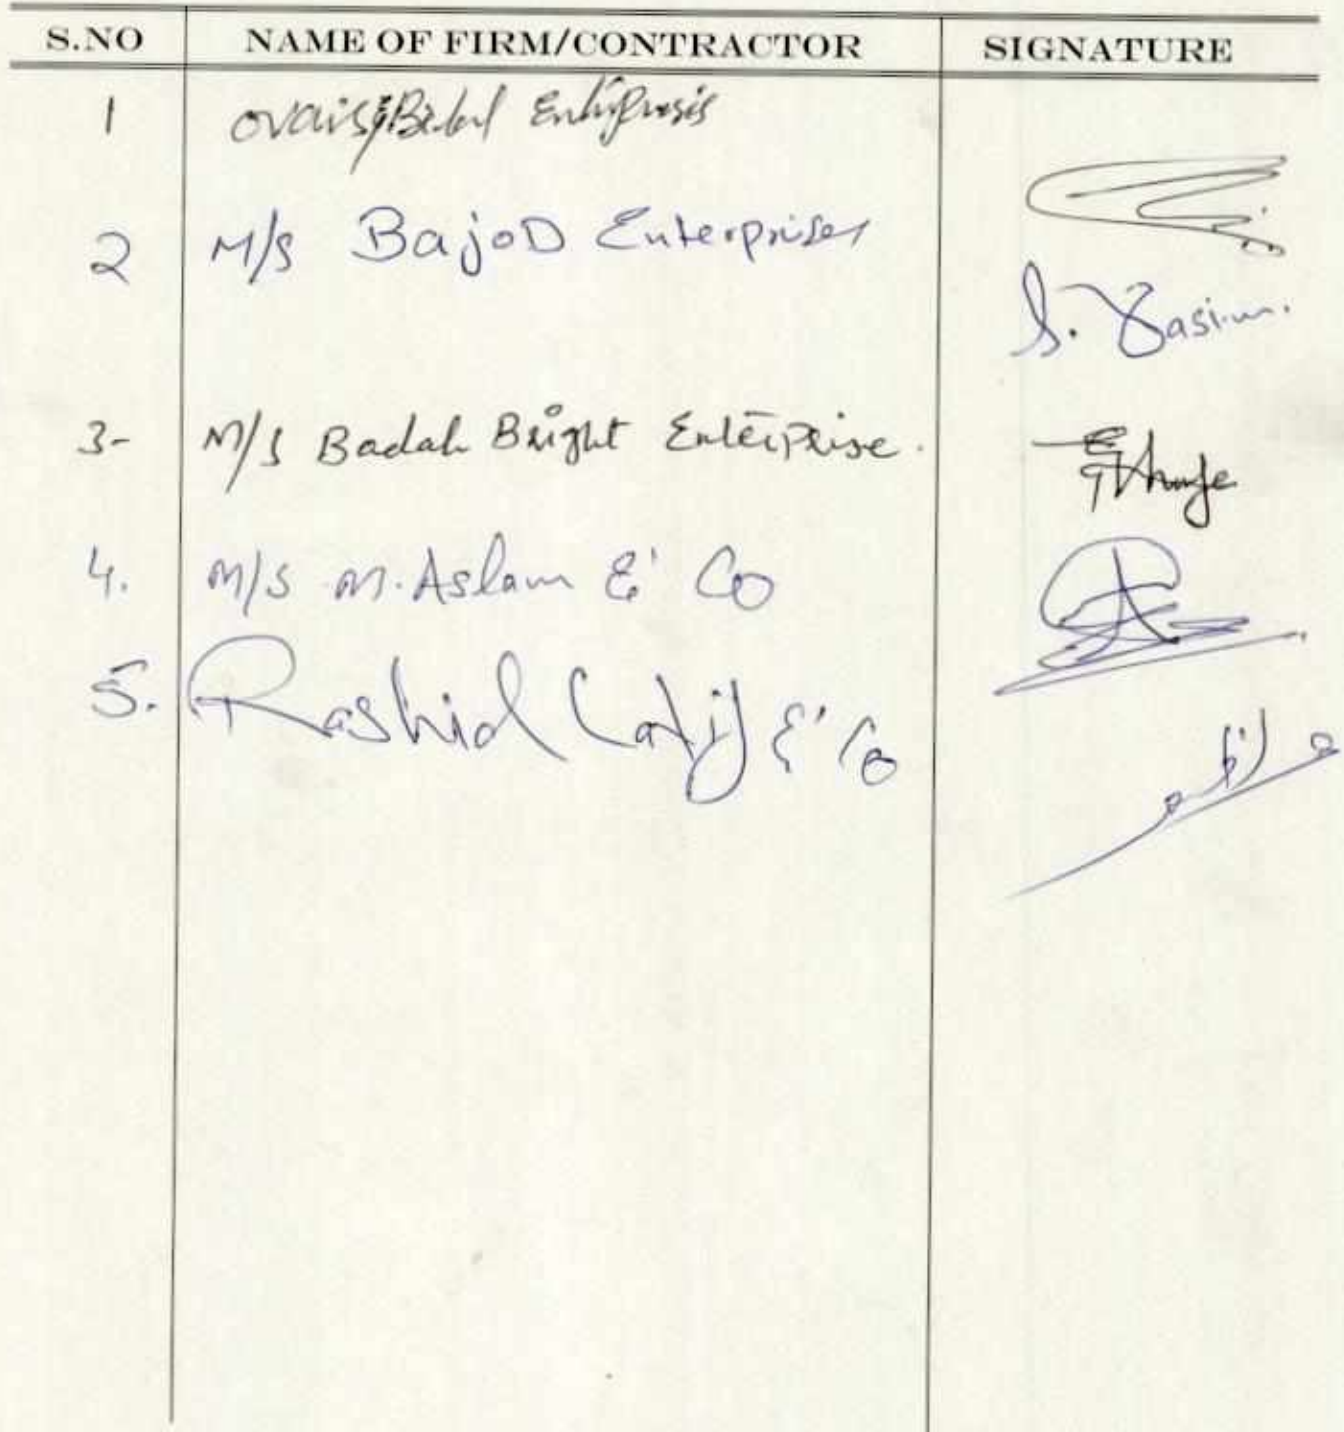 S.NO NAME OF FIRM/CONTRACTOR SIGNATURE
1 ovais & Belal
2 M/S BajoD Enterprises
S. Yasim.
3- M/S Badah Bright Enterprise.
4. M/S M. Aslam & Co
5. Rashid Latif & Co